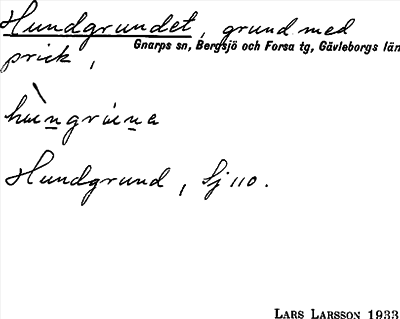 Hundgrundet, grund med
Gnarps sn, Bergsjö och Forsa tg, Gävleborgs län
prick,
Hundgrund, Sj 110.
LARS LARSSON 1933